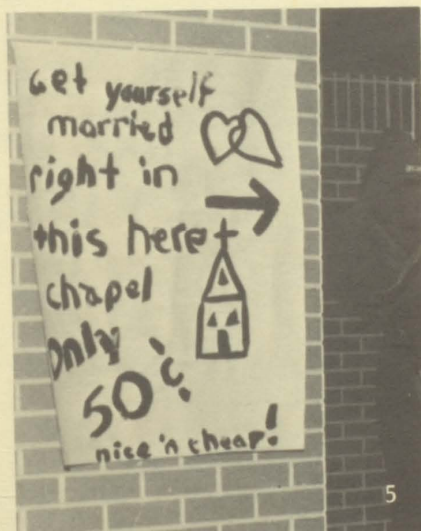 Get yourself
married
right in
this here
chapel
only
50¢
nice 'n cheap!
5